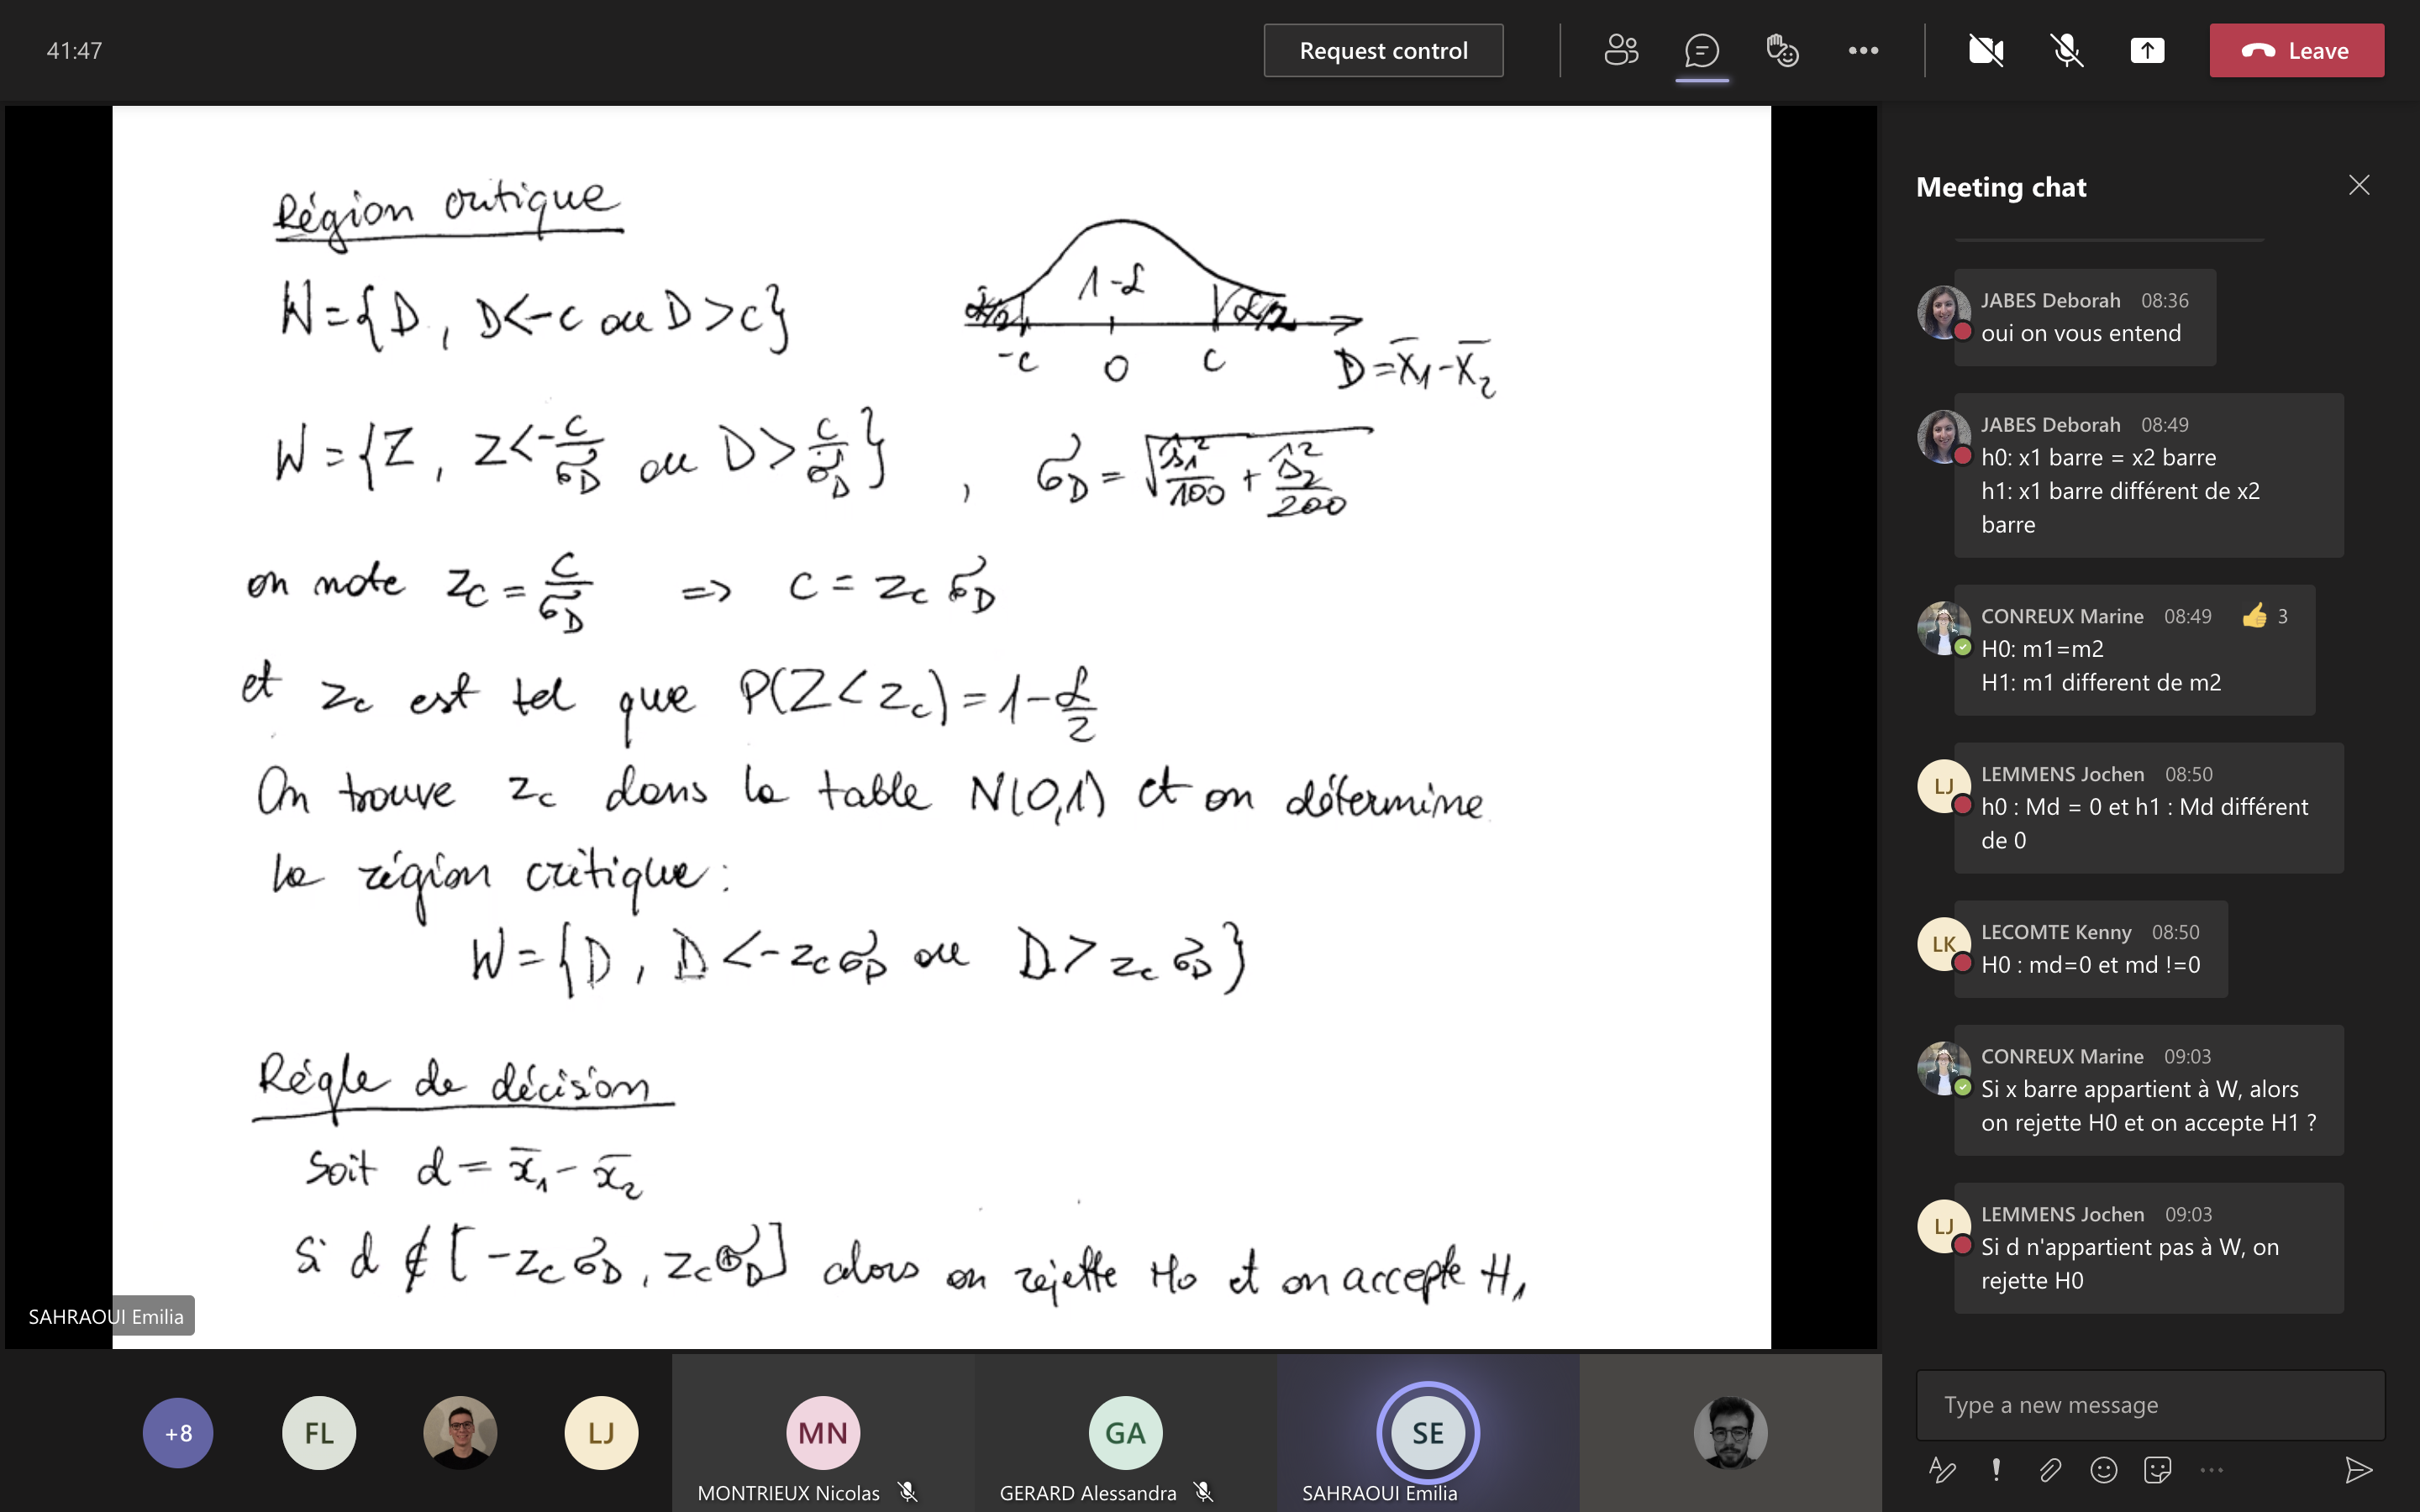 41:47
Request control
Leave
Région critique
W={D, D<-c ou D>c}
α/2
1-α
α/2
-c
0
c
D=X̄1-X̄2
W={Z, Z<-c/σ̂D ou D>c/σ̂D}, σ̂D=√(ŝ1²/100+ŝ2²/200)
on note zc=c/σ̂D => c=zc σ̂D
et zc est tel que P(Z<zc)=1-α/2
On trouve zc dans la table N(0,1) et on détermine
la région critique:
W={D, D<-zcσ̂D ou D>zcσ̂D}
Règle de décision
Soit d=x̄1-x̄2
Si d∉[-zcσ̂D, zcσ̂D] alors on rejette H0 et on accepte H1
SAHRAOUI Emilia
+8
FL
LJ
MN
MONTRIEUX Nicolas
GA
GERARD Alessandra
SE
SAHRAOUI Emilia
Meeting chat
JABES Deborah 08:36
oui on vous entend
JABES Deborah 08:49
h0: x1 barre = x2 barre
h1: x1 barre différent de x2
barre
CONREUX Marine 08:49 👍 3
H0: m1=m2
H1: m1 different de m2
LJ
LEMMENS Jochen 08:50
h0 : Md = 0 et h1 : Md différent
de 0
LK
LECOMTE Kenny 08:50
H0 : md=0 et md !=0
CONREUX Marine 09:03
Si x barre appartient à W, alors
on rejette H0 et on accepte H1 ?
LJ
LEMMENS Jochen 09:03
Si d n'appartient pas à W, on
rejette H0
Type a new message